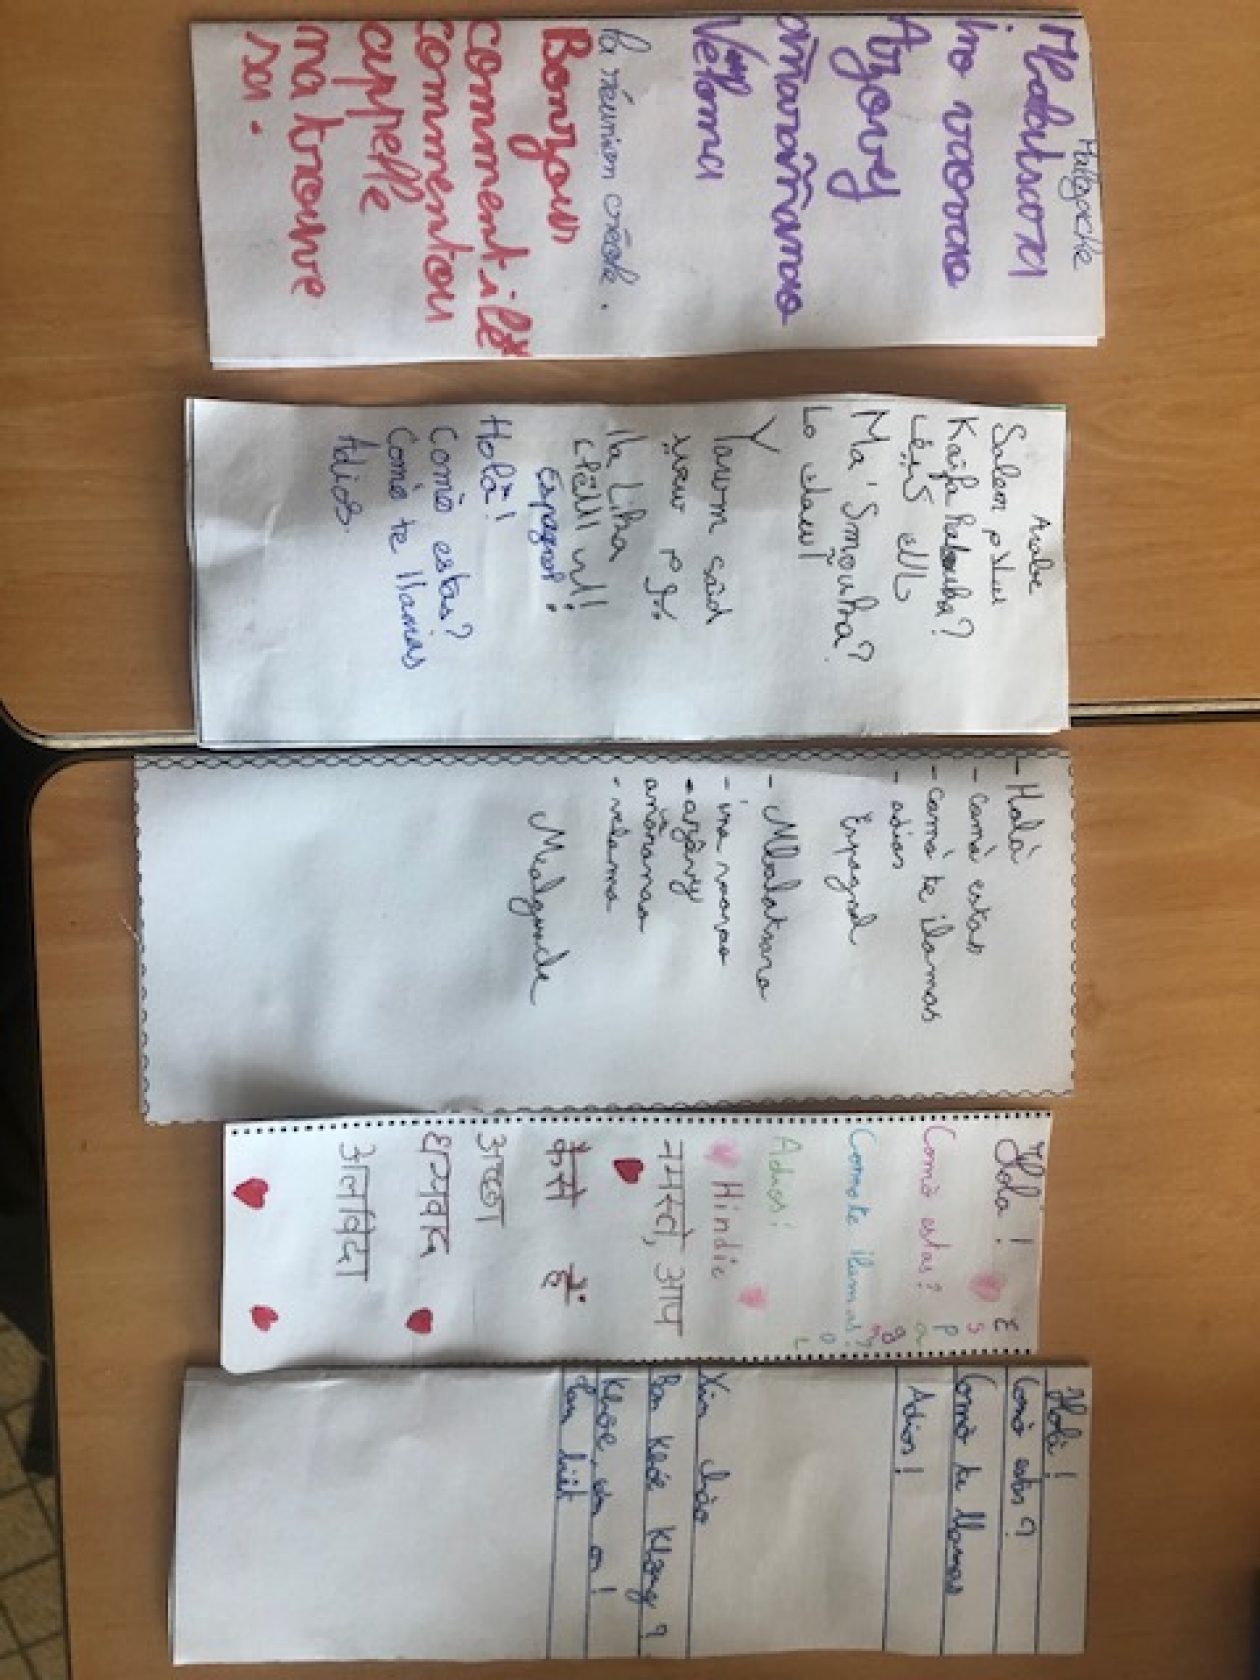 Malgache
Mbalatsara
ino vaovao
Azovy
añaranao
Veloma
la réunion créole.
Bonzour
comment i lé
comment ou
apelle
na trouve
sai.
Arabe
Salem سلام
Kaifa halouka?
كيف حالك
Ma' Smouka?
Yawm saïd
يوم
Ila Lika
إلى
Espagnol:
Holà!
Comò estas?
Comò te llamas
Adios.
- Holà
- comò estas
- comò te llamas
- adios
Espagnol
- Mbalatsara
- ino vaovao
- azôvy
añaranao
- veloma
Malgache
Hola!
Comò estas?
Comote llamas?
Adios!
Espagnol
Hindie
नमस्ते, आप
कैसे हैं
अच्छा
धन्यवाद
अलविदा
Holà!
Comò estas?
Comò te llamas
Adios!
Xin chào
Ban khôe không?
Khôe, cam on!
Tam biêt